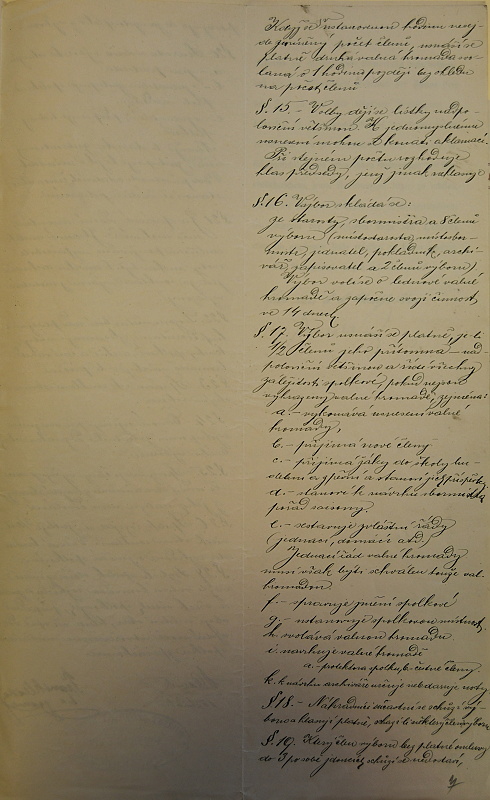 Když se v ustanovenou hodinu nesej-
de potřebný počet členů, usnáší se
platně druhá valná hromada svo-
laná o 1 hodinu později bez ohledu
na počet členů
§. 15. – Volby dějí se lístky nadpo-
loviční většinou. K jednomyslnému
usnesení mohou se konati aklamací.
Při stejném počtu rozhoduje
hlas předsedy, jenž jinak nehlasuje
§. 16. Výbor skládá se:
ze starosty, sbormistra a 8 členů
výboru (místostarosta, místosbor-
mistr, jednatel, pokladník, archi-
vář, zapisovatel a 2 členů výboru)
Výbor volí se v lednové valné
hromadě a započne svoji činnost
ve 14 dnech
§. 17. Výbor usnáší se platně, je-li
1/2 členů jeho přítomna – nad-
poloviční většinou a řídí všechny
záležitosti spolkové, pokud nejsou
vyhrazeny valné hromadě, zejména:
a. – vykonává usnesení valné
hromady,
b. – přijímá nové členy
c. – přijímá žáky do školy hu-
debni a zpěvní a stanoví jich příspěvky
d. – stanoví k návrhu sbormistra
pořad saisony.
e. – sestavuje zvláštní řády
(jednací, domácí atd.)
Jednací řád valné hromady
musí však býti schválen touže val.
hromadou.
f. – spravuje jmění spolkové
g. – ustanovuje spolkovou místnost.
h. svolává valnou hromadu
i. navrhuje valné hromadě
a. – protektora spolku, b. čestné členy.
k. k návrhu archiváře určuje
§ 18. – Náhradníci účastní se schůzí vý-
boru a hlasují platně,
§. 19. Který člen výboru bez platné omluvy
do 3 po sobě jdoucích schůzí se nedostaví,